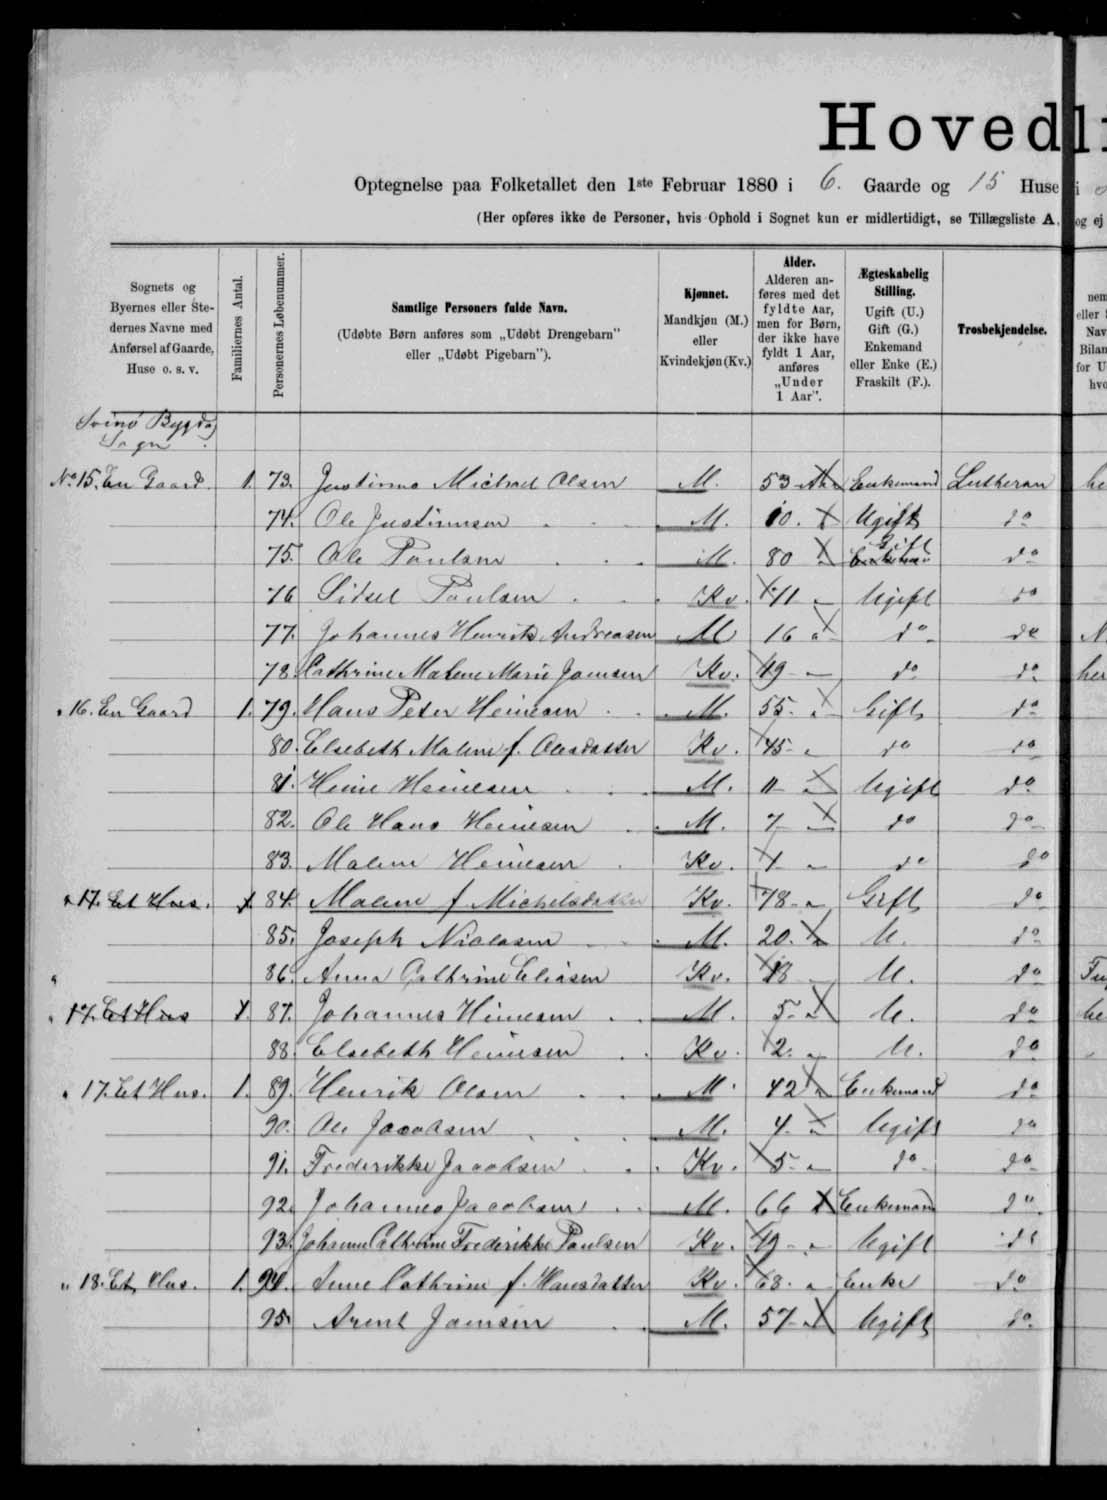 Hovedli
Optegnelse paa Folketallet den 1ste Februar 1880 i 6. Gaarde og 15 Huse i
(Her opføres ikke de Personer, hvis Ophold i Sognet kun er midlertidigt, se Tillægsliste A, og ej
Sognets og Byernes eller Stedernes Navne med Anførsel af Gaarde, Huse o. s. v.
Familiernes Antal.
Personernes Løbenummer.
Samtlige Personers fulde Navn.
(Udøbte Børn anføres som „Udøbt Drengebarn"
eller „Udøbt Pigebarn").
Kjønnet.
Mandkjøn (M.)
eller
Kvindekjøn (Kv.)
Alder.
Alderen anføres med det fyldte Aar, men for Børn, der ikke have fyldt 1 Aar, anføres „Under 1 Aar".
Ægteskabelig Stilling.
Ugift (U.)
Gift (G.)
Enkemand
eller Enke (E.)
Fraskilt (F.).
Trosbekjendelse.
Svinø Bygd
Sogn
No 15. En Gaard. 1. 73. Justinus Michael Olsen M. 53 Aar Enkemand Lutheran he
74. Ole Justinussen M. 10. Ugift do
75. Ole Poulsen M. 80 Gift do
76 Sidsel Poulsen Kv. 71 Ugift do
77. Johannes Henrik Andreasen M 16 do do
78. Cathrine Malene Marie Joensen Kv. 49 do do her
" 16. En Gaard 1. 79. Hans Peter Heinesen M. 55 Gift do
80. Elsebeth Malene f. Olesdatter Kv. 45 do do
81. Heine Heinesen M. 11 Ugift do
82. Ole Hans Heinesen M. 7 do do
83. Malene Heinesen Kv. 1 do do
" 17. Et Hus. 1. 84. Malene f Michelsdatter Kv. 78 Gift do
85. Joseph Niclasen M. 20. U. do
86. Anna Cathrine Eliasen Kv. 13 U. do
" 17. Et Hus 1. 87. Johannes Heinesen M. 5 U. do he
88. Elsebeth Heinesen Kv. 2. U. do
" 17. Et Hus. 1. 89. Henrik Olsen M. 42 Enkemand do
90. Ole Jacobsen M. 4. Ugift do
91. Frederikke Jacobsen Kv. 5 do do
92. Johannes Jacobsen M. 66 Enkemand do
93. Johanne Cathrine Frederikke Poulsen Kv. 49 Ugift do
" 18. Et Hus. 1. 94. Anne Cathrine f. Hansdatter Kv. 68. Enke do
95. Arent Joensen M. 57 Ugift do